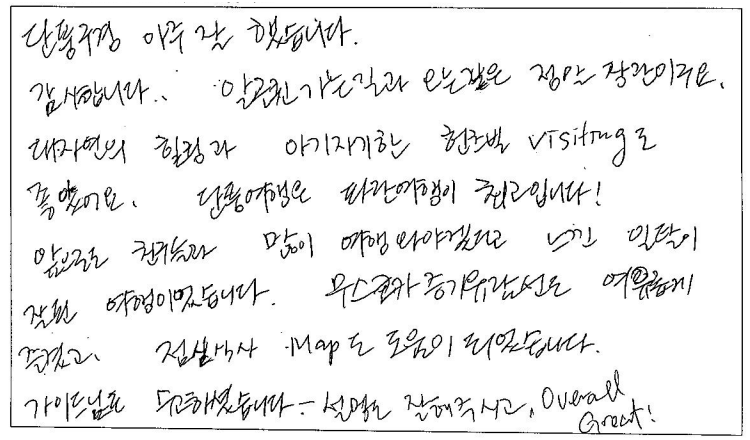 단풍구경 아주 잘 했습니다.
감사합니다.. 알곤퀸 가는길과 오는길은 정말 장관이구요.
대자연의 힐링과 아기자기한 헌츠빌 visiting도
좋았어요. 단풍여행은 파란여행이 최고입니다!
앞으로도 친구들과 많이 여행와야겠다고 느낀 일탈이
잘된 여행이었습니다. 무스코카 증기유람선도 여유롭게
즐겼고, 점심식사 Map도 도움이 되었습니다.
가이드님도 수고하셨습니다 - 설명도 잘해주시고, Overall
Great!